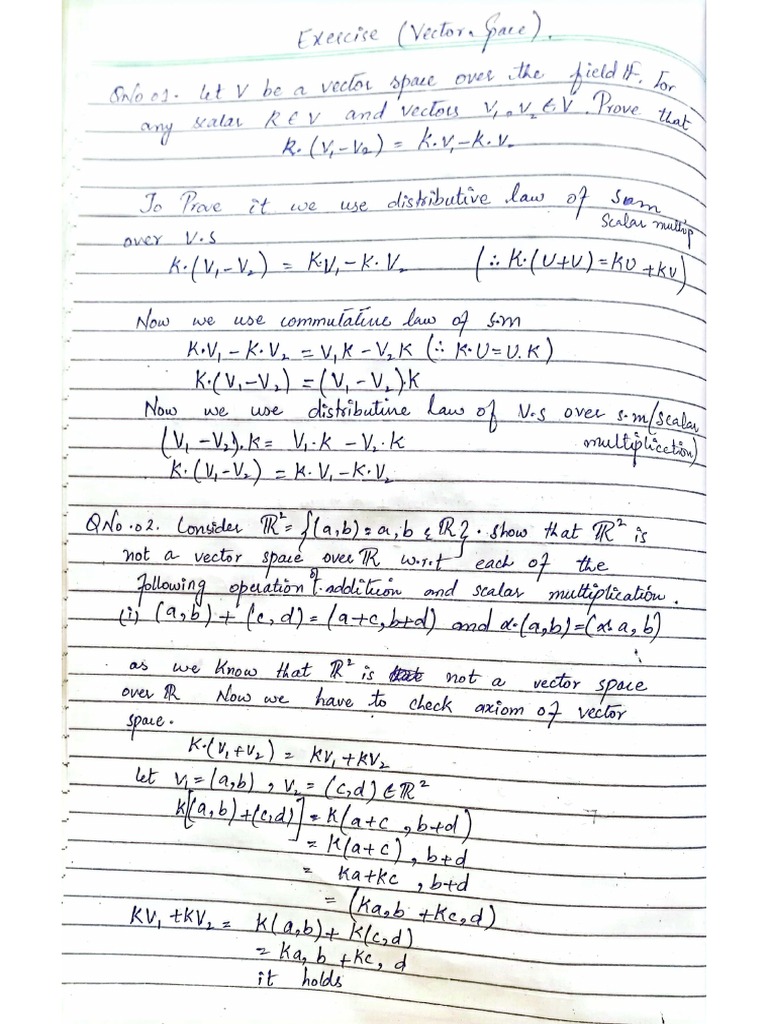 Exercise (Vector Space).
QNo 01. Let V be a vector space over the field F. For
any scalar K ∈ V and vectors V₁, V₂ ∈ V. Prove that
k.(V₁-V₂) = K.V₁-K.V₂
To Prove it we use distributive law of sam
scalar multip
over V.S
K.(V₁-V₂) = K.V₁-K.V₂ (∴ K.(U+V)=KU+KV)
Now we use commutative law of s.m
K.V₁-K.V₂ = V₁K - V₂K (∴ K.U=U.K)
K.(V₁-V₂) = (V₁-V₂).K
Now we use distributine law of V.s over s.m (scalar
multiplicction)
(V₁-V₂).K = V₁.K - V₂.K
K.(V₁-V₂) = K.V₁-K.V₂
QNo.02. Consider ℝ²={(a,b)=a,b ∈ ℝ}. show that ℝ² is
not a vector space over ℝ w.r.t each of the
following operation of addition and scalar multiplication.
(i) (a,b)+(c,d)=(a+c,b+d) and α.(a,b)=(α a, b)
as we know that ℝ² is not a vector space
over ℝ Now we have to check axiom of vector
space.
K.(V₁+V₂) = KV₁+KV₂
let V₁=(a,b), V₂=(c,d) ∈ ℝ²
K[(a,b)+(c,d)] = K(a+c, b+d)
= K(a+c), b+d
= Ka+Kc, b+d
= (Ka,b + Kc,d)
KV₁+KV₂ = K(a,b)+K(c,d)
= Ka, b + Kc, d
it holds